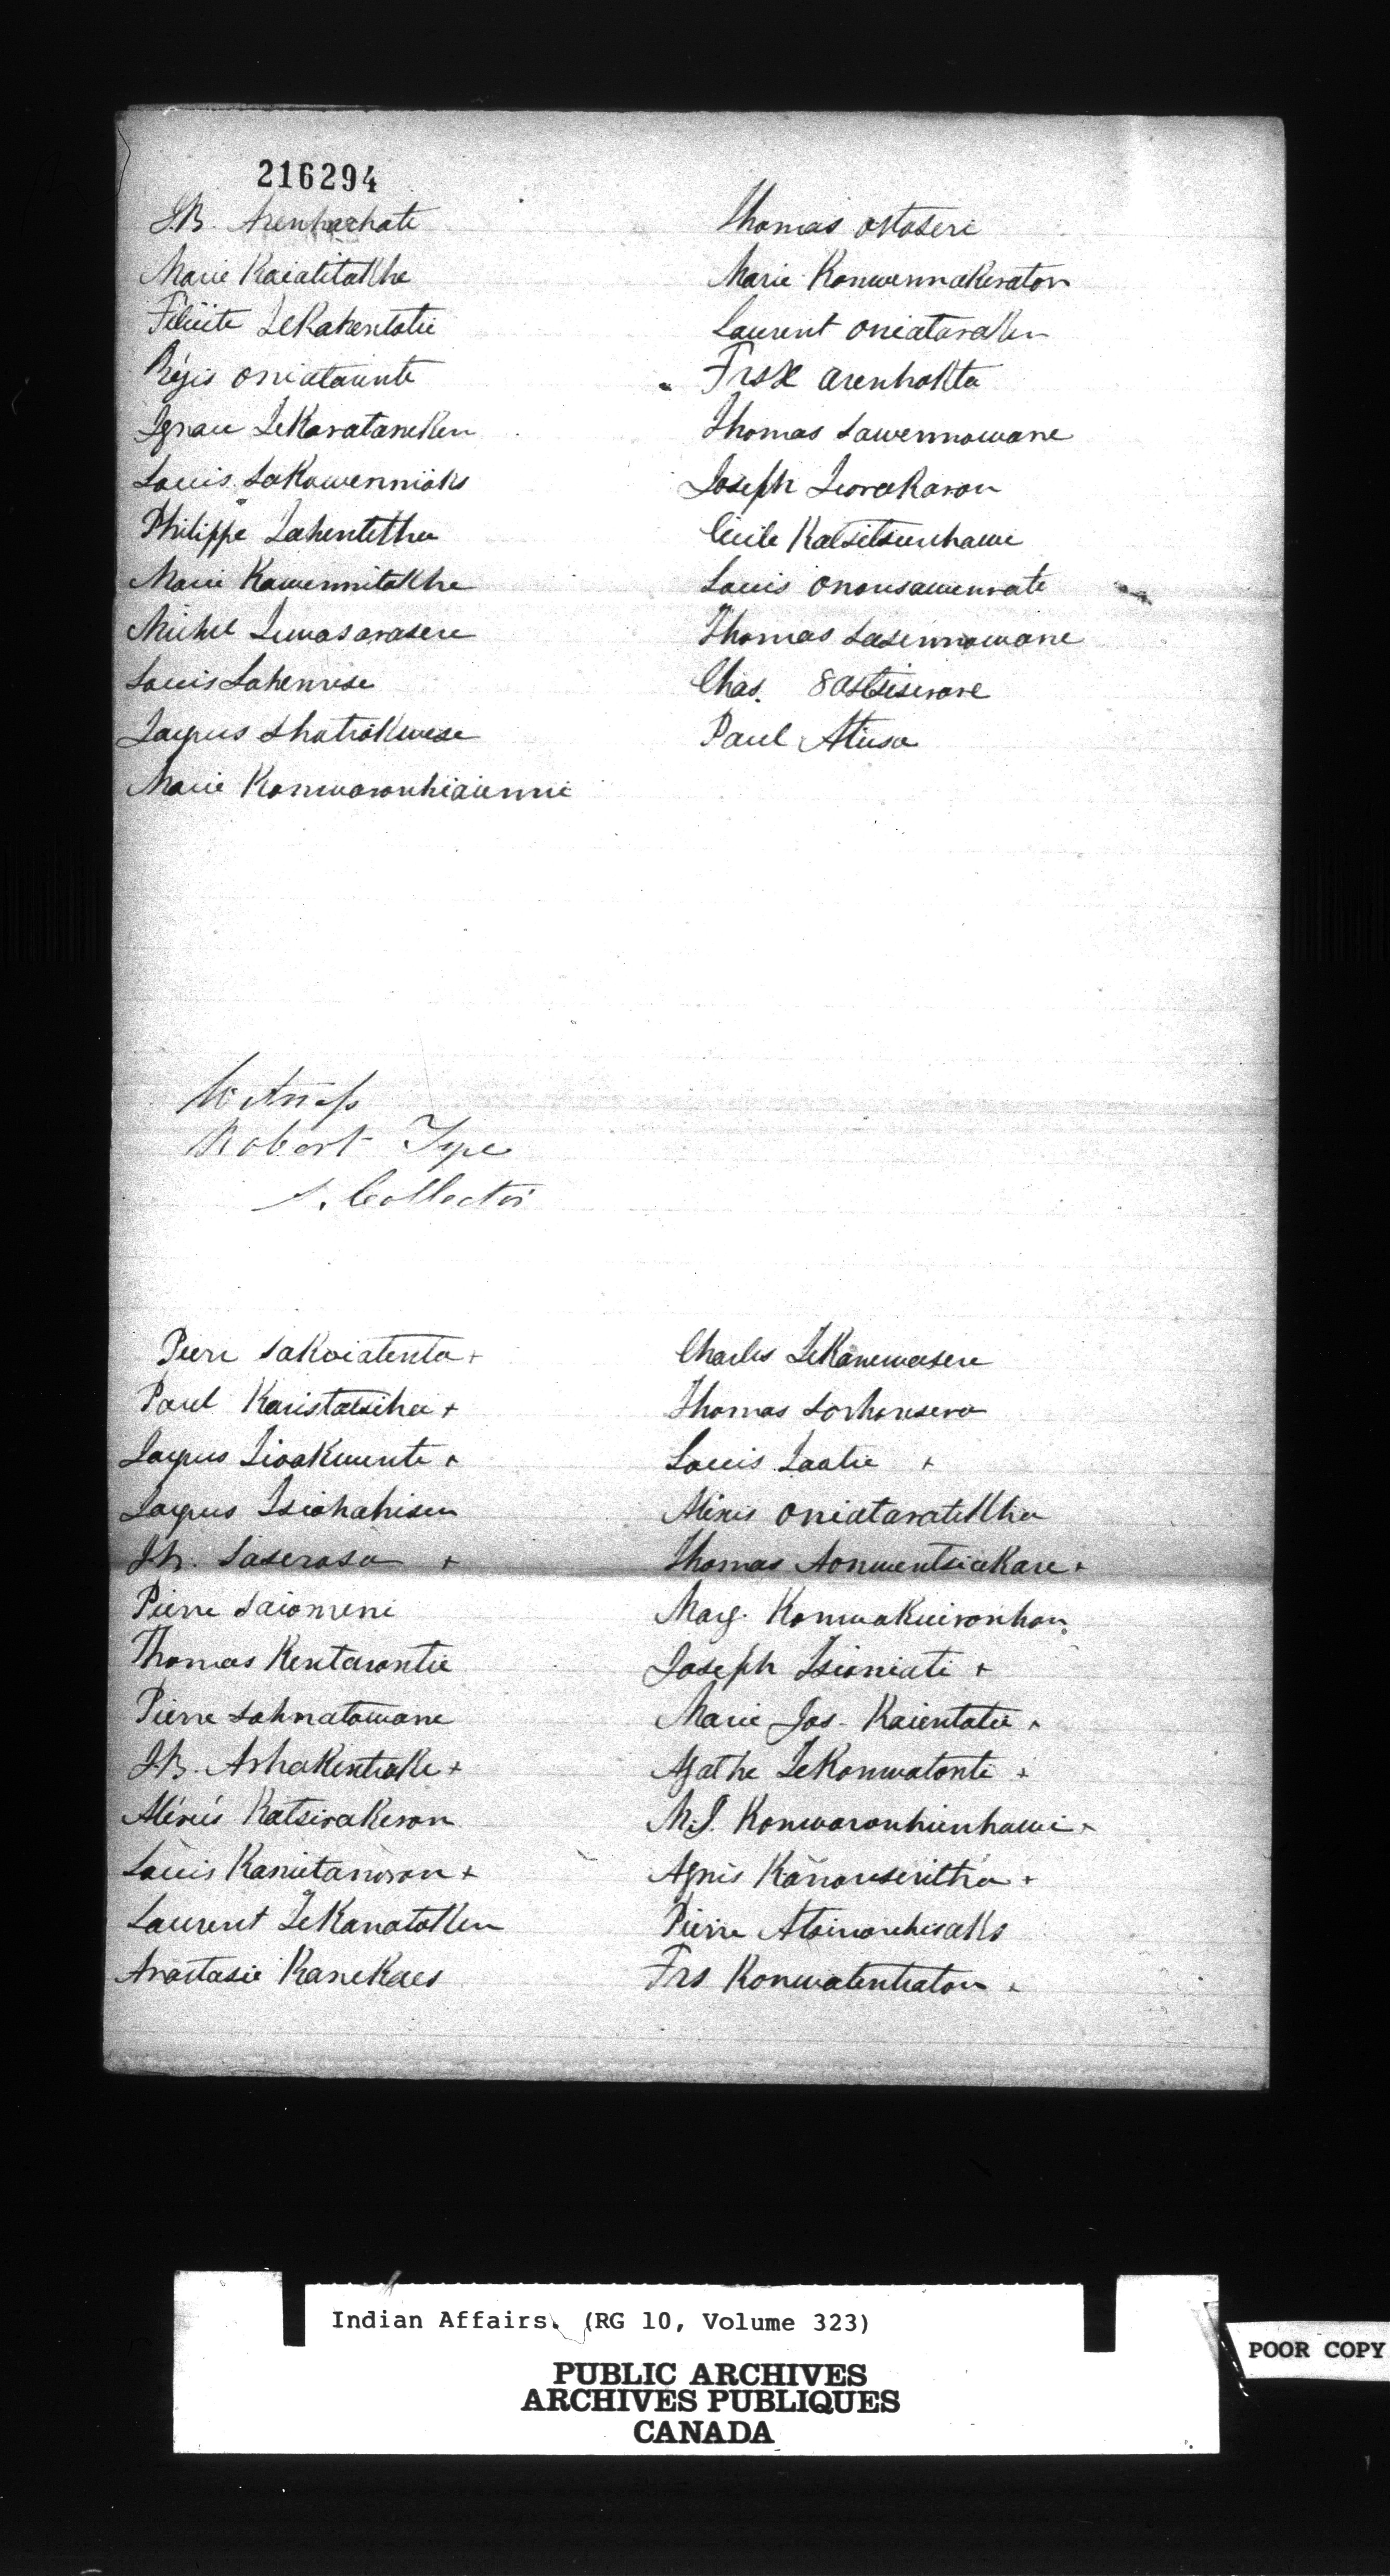 216294
J.B. Arenharhate
Marie Kaiatitakhe
Félicité TeKarhentatie
Régis Oniataiente
Ignace TeKarataneken
Louis SaKawenniioks
Philippe Tahentetha
Marie Kawennitakhe
Michel Tewasarasere
Louis Sahenrese
Jacques Shatiokwese
Marie Konwaronhiaienni
Thomas Ostoseri
Marie KonwennaKeraton
Laurent OniataraKen
Frs X Arenhokta
Thomas Sawennowane
Joseph TiorakaroN
Cécile Katsitsienhawi
Louis Ononsawenrate
Thomas Sasennowane
Chas. 8astsiserore
Paul Atiusa
Witness
Robert Type
S. Collector
Pierre Sakoiatenta +
Paul Karistatsihea +
Jacques TioaKwente +
Jacques Tsiohahisen
Jh. Saserosa +
Pierre Saiomeni
Thomas Kentarontie
Pierre Sohnatowane
J.B. Arhakentiake +
Alexis Katsirakeron
Louis Kanietanoron +
Laurent TeKanatoken
Anastasie Kanekaes
Charles TeKanewasere
Thomas Sorhonsera
Louis Taatie +
Alexis Oniataratekha
Thomas Aonwentsiakare +
Marg. Konwakieironhon
Joseph Tsioniati +
Marie Jos. Kaientatie +
Agathe TeKonwatonti +
M.J. Konwaronhienhawi +
Agnès Kanonsenitha +
Pierre Atoinonhisaks
Frs Konwatentiaton +
Indian Affairs. (RG 10, Volume 323)
PUBLIC ARCHIVES
ARCHIVES PUBLIQUES
CANADA
POOR COPY